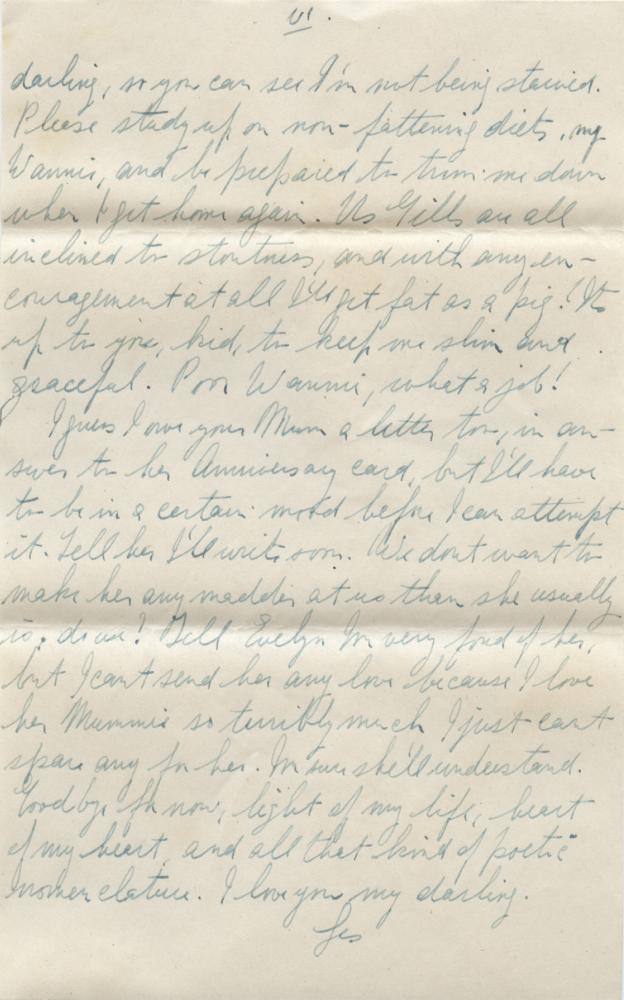 VI.
darling, so you can see I'm not being starved.
Please study up on non-fattening diets, my
Wannie, and be prepared to trim me down
when I get home again. Us Gills are all
inclined to stoutness, and with any en-
couragement at all I'll get fat as a pig! It's
up to you, kid, to keep me slim and
graceful. Poor Wannie, what a job!
I guess I owe your Mum a letter too, in an-
swer to her Anniversary card, but I'll have
to be in a certain mood before I can attempt
it. Tell her I'll write soon. We dont want to
make her any madder at us than she usually
is, do we? Tell Evelyn I'm very fond of her,
but I can't send her any love because I love
her Mummie so terribly much I just can't
spare any for her. I'm sure she'll understand.
Goodbye for now, light of my life, heart
of my heart, and all that kind of poetic
nomenclature. I love you my darling.
Les